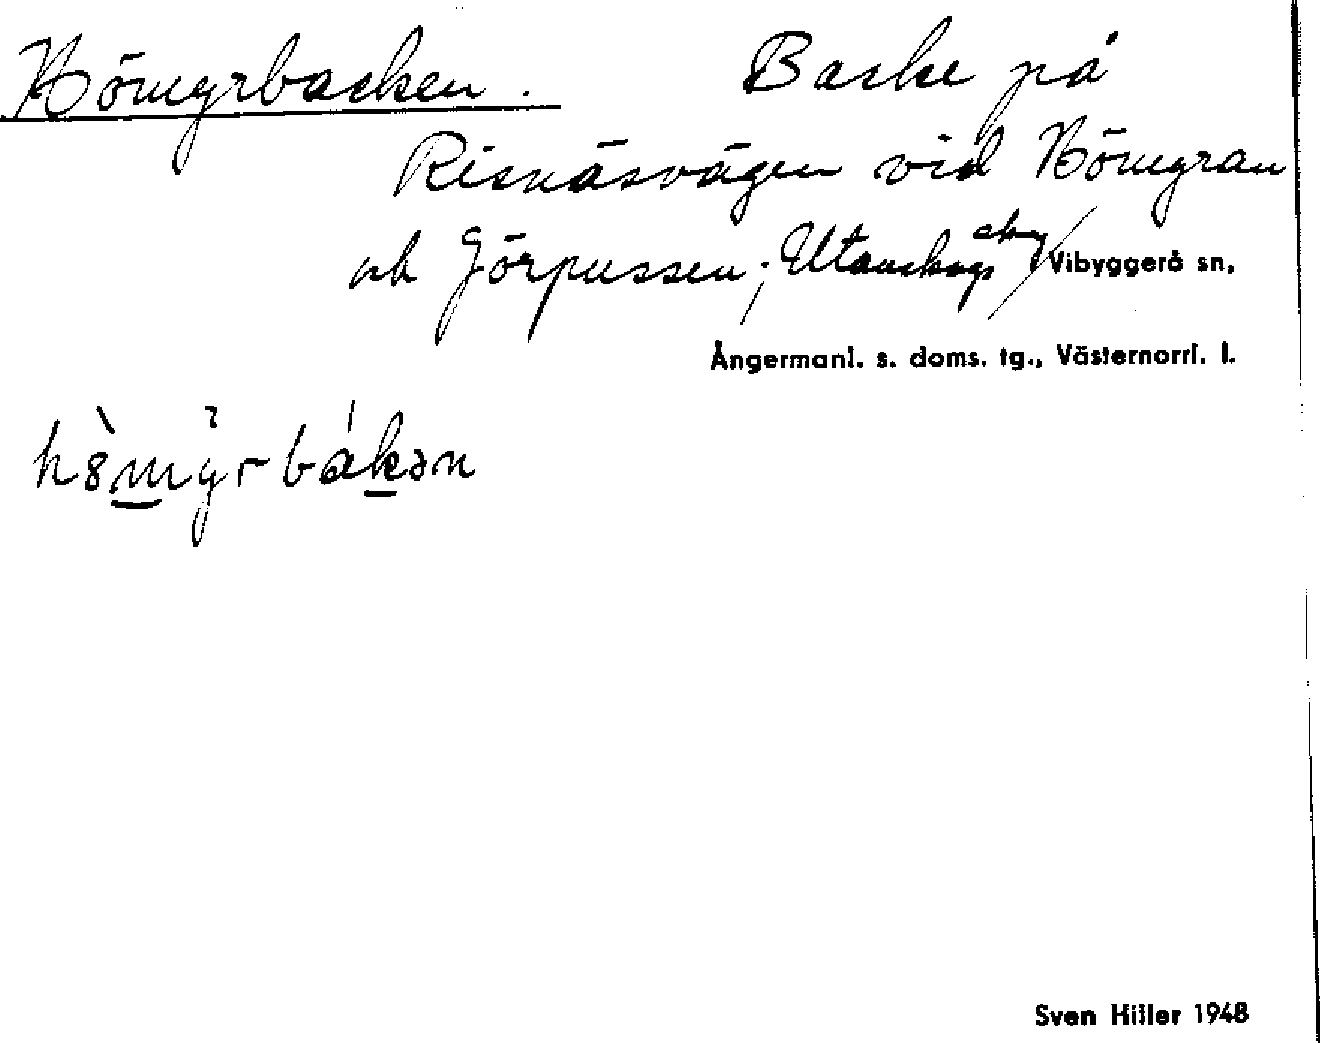 Hömyrbacken. Backe på
Risnäsvägen vid Hömyran
och Görpussen; Utanskogs Vibyggerå sn,
Ångermanl. s. doms. tg., Västernorrl. l.
Sven Hiller 1948